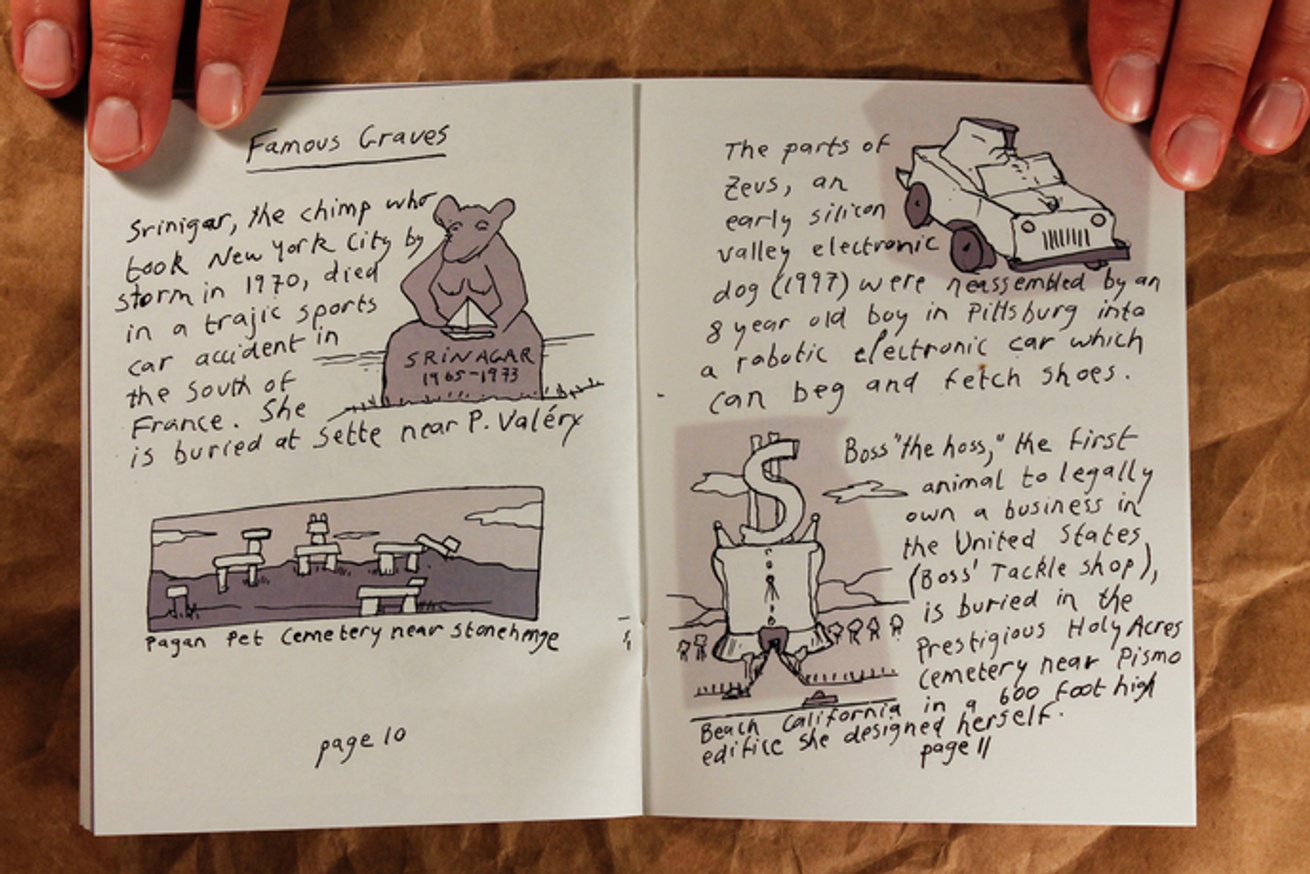 Famous Graves
Srinigar, the chimp who
took New York City by
storm in 1970, died
in a trajic sports
car accident in
the south of
France. She
is buried at Sette near P. Valéry
SRINAGAR
1965-1973
Pagan Pet Cemetery near Stonehenge
page 10
The parts of
Zeus, an
early silicon
valley electronic
dog (1997) were reassembled by an
8 year old boy in Pittsburg into
a robotic electronic car which
can beg and fetch shoes.
$
Boss "the hoss," the first
animal to legally
own a business in
the United States
(Boss' Tackle shop),
is buried in the
Prestigious Holy Acres
Cemetery near Pismo
Beach California in a 600 foot high
edifice she designed herself.
page 11